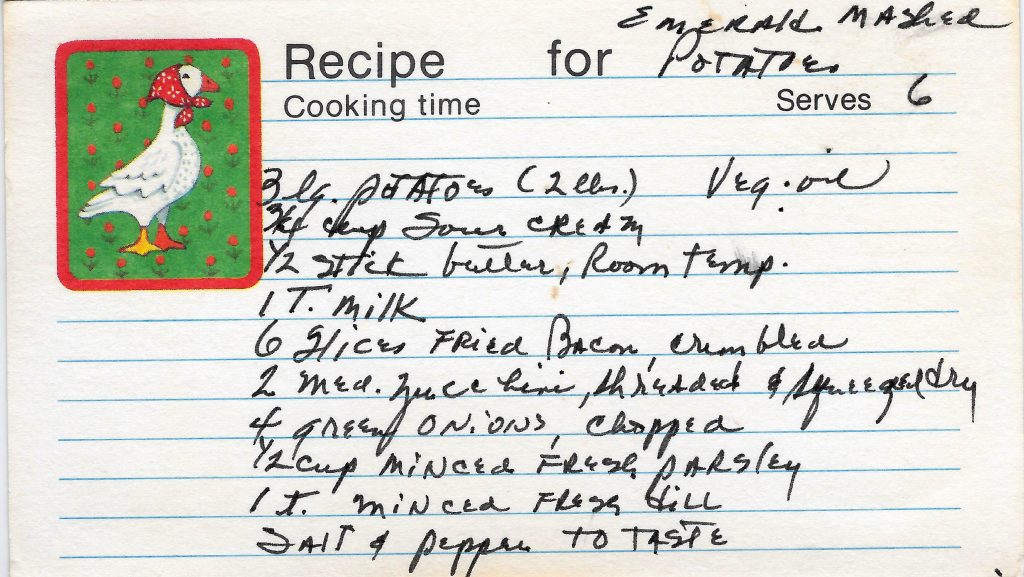 Emerald Mashed
Recipe for Potatoes
Cooking time Serves 6
3 lg. potatoes (2 lbs.) Veg. oil
3/4 cup Sour cream
1/2 stick butter, Room temp.
1 T. Milk
6 Slices Fried Bacon, crumbled
2 med. zucchini, shredded & squeezed dry
4 green onions, chopped
1/2 cup minced fresh parsley
1 t. minced fresh dill
Salt & pepper to taste